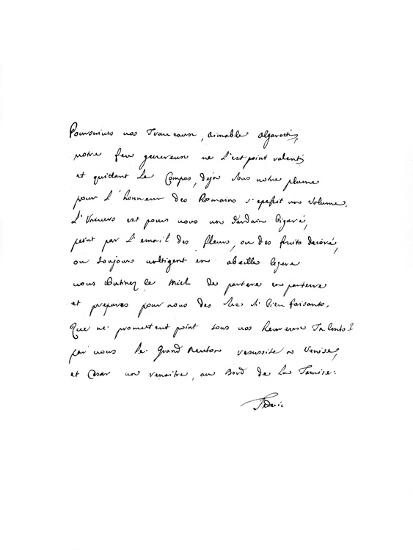 Poursuives vos Traveaux, aimable algarotti,
votre feu genereux ne s'est point ralenti,
et quittant le Compas, deja sous votre plume
pour l'honneur des Romains s'epessit un volume.
L'Univers est pour vous un Jardin bigaré,
peint par l'email des fleurs, ou des fruits decoré,
ou toujours voltigent en abeille legere
vous butinez le miel de parterre en parterre
et prepares pour nous des sucs si bien faisants.
Que ne promettent point tous vos heureux Talents?
par vous le Grand Neuton resussite a Venise,
et Cesar va renaitre, au Bord de la Tamise.
Federic